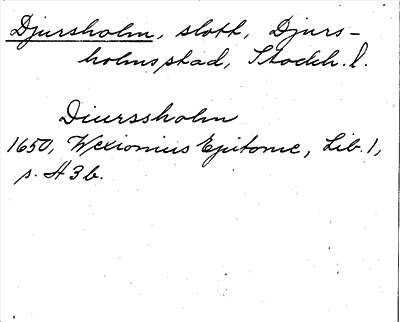 Djursholm, slott, Djurs-
holms stad, Stockh. l.
Diurssholm
1650, Wexionius Epitome, Lib. 1,
s. A 3 b.